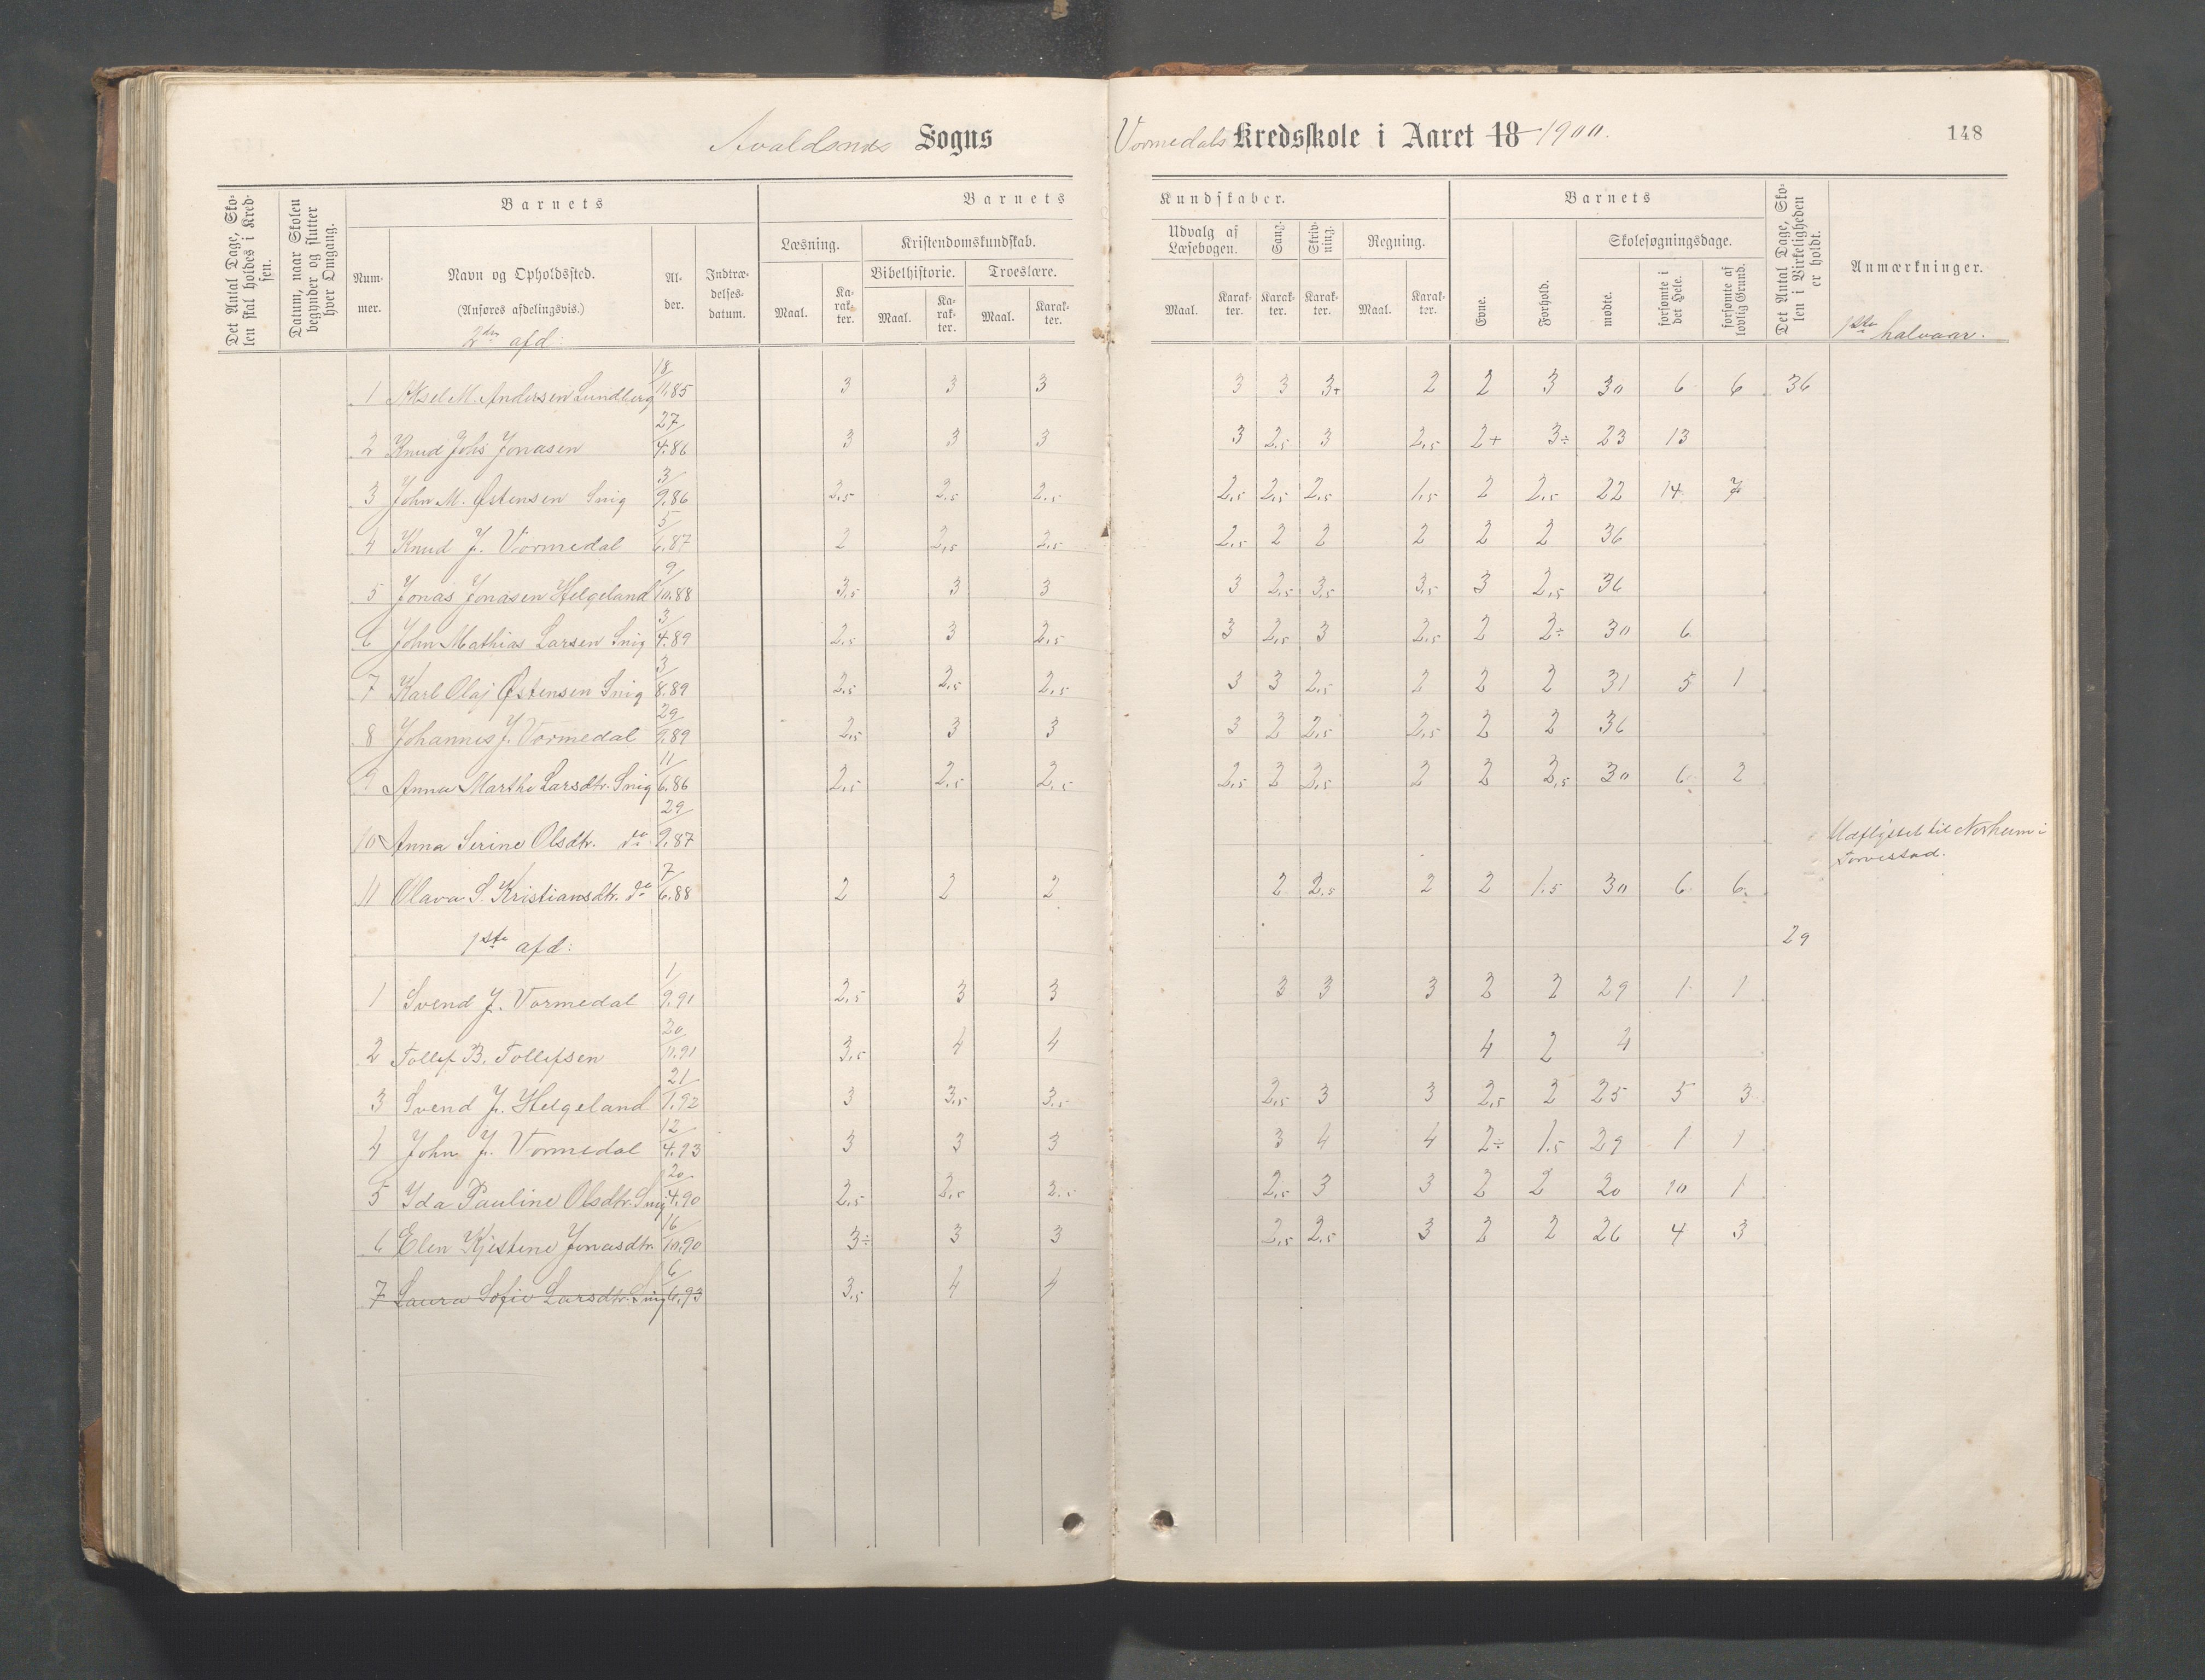 Avaldsnes Sogns Vormedals Kredsskole i Aaret 18 1900. 148
Det Antal Dage, Skolen skal holdes i Kredsen.
Datum, naar Skolen begynder og slutter hver Omgang.
Barnets
Nummer.
Navn og Opholdssted.
(Anføres afdelingsvis.)
Alder.
Indtrædelsesdatum.
Barnets Kundskaber.
Læsning.
Kristendomskundskab.
Bibelhistorie. Troeslære.
Maal. Karakter. Maal. Karakter. Maal. Karakter.
Udvalg af Læsebogen. Sang. Skrivning. Regning.
Maal. Karakter. Karakter. Karakter. Maal. Karakter.
Barnets
Evne. Forhold. Skolesøgningsdage.
mødte. forsømte i det Hele. forsømte af lovlig Grund.
Det Antal Dage, Skolen i Virkeligheden er holdt.
Anmærkninger.
2den afd: 1ste halvaar.
1 Aksel M. Andersen Lundberg 18/11.85 3 3 3 3 3 3+ 2 2 3 30 6 6 36
2 Knud Johs Jonasen 27/4.86 3 3 3 3 2,5 3 2,5 2+ 3÷ 23 13
3 John M. Østensen Snig 3/9.86 2,5 2,5 2,5 2,5 2,5 2,5 1,5 2 2,5 22 14 7
4 Knud J. Vormedal 5/6.87 2 2,5 2,5 2,5 2 2 2 2 2 36
5 Jonas Jonasen Helgeland 9/10.88 3,5 3 3 3 2,5 3,5 3,5 3 2,5 36
6 John Mathias Larsen Snig 3/4.89 2,5 3 2,5 3 2,5 3 2,5 2 2÷ 30 6
7 Karl Olaj Østensen Snig 3/8.89 2,5 2,5 2,5 3 3 2,5 2 2 2 31 5 1
8 Johannes J. Vormedal 29/9.89 2,5 3 3 3 2 2,5 2,5 2 2 36
9 Anna Marthe Larsdtr. Snig 11/6.86 2,5 2,5 2,5 2,5 2 2,5 2 2 2,5 30 6 2
10 Anna Serine Olsdtr. do 29/9.87 Udflyttet til Norheim i
Torvestad.
11 Olava S. Kristiansdtr. do 7/6.88 2 2 2 2 2,5 2 2 1,5 30 6 6
1ste afd: 29
1 Svend J. Vormedal 1/9.91 2,5 3 3 3 3 3 2 2 29 1 1
2 Tollef B. Tollefsen 20/11.91 3,5 4 4 4 2 4
3 Svend J. Helgeland 21/1.92 3 3,5 3,5 2,5 3 3 2,5 2 25 5 3
4 John J. Vormedal 12/4.93 3 3 3 3 4 4 2÷ 1,5 29 1 1
5 Ida Pauline Olsdtr. Snig 20/4.90 2,5 2,5 2,5 2,5 3 3 2 2 20 10 1
6 Elen Kjestine Jonasdtr. 16/10.90 3÷ 3 3 2,5 2,5 3 2 2 26 4 3
7 Laura Sofie Larsdtr. Snig 6/6.93 3,5 4 4